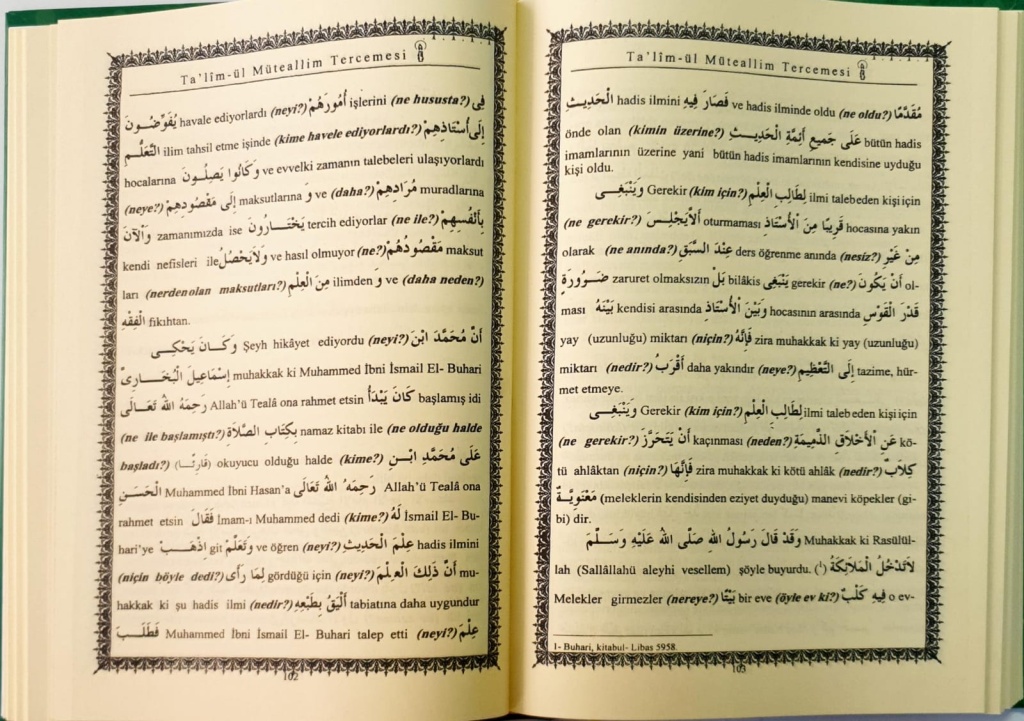 Ta'lîm-ül Müteallim Tercemesi
فِي (ne hususta?) işlerini أُمُورَهُمْ (neyi?) havale ediyorlardı يُفَوِّضُونَ
إِلَى أُسْتَاذِهِمْ (kime havale ediyorlardı?) ilim tahsil etme işinde التَّعَلُّمِ
hocalarına وَكَانُوا يَصِلُونَ ve evvelki zamanın talebeleri ulaşıyorlardı
(neye?) إِلَى مَقْصُودِهِمْ maksutlarına وَ ve (daha?) مُرَادِهِمْ muradlarına
بِأَنْفُسِهِمْ (ne ile?) tercih ediyorlar يَخْتَارُونَ zamanımızda ise وَالْآنَ
kendi nefisleri ile وَلَايَحْصُلُ ve hasıl olmuyor (ne?) مَقْصُودُهُمْ maksut
ları (nerden olan maksutları?) مِنَ الْعِلْمِ ilimden وَ ve (daha neden?)
الْفِقْهِ fıkıhtan.
وَكَانَ يَحْكِي Şeyh hikâyet ediyordu (neyi?) أَنَّ مُحَمَّدَ ابْنَ
إِسْمَاعِيلَ الْبُخَارِىَّ muhakkak ki Muhammed İbni İsmail El- Buhari
رَحِمَهُ اللهُ تَعَالَى Allah'ü Tealâ ona rahmet etsin كَانَ يَبْدَأُ başlamış idi
(ne ile başlamıştı?) بِكِتَابِ الصَّلَاةِ namaz kitabı ile (ne olduğu halde
başladı?) (قَارِئًا) okuyucu olduğu halde (kime?) عَلَى مُحَمَّدِ ابْنِ
الْحَسَنِ Muhammed İbni Hasan'a رَحِمَهُ اللهُ تَعَالَى Allah'ü Tealâ ona
rahmet etsin فَقَالَ İmam-ı Muhammed dedi (kime?) لَهُ İsmail El- Bu-
hari'ye اِذْهَبْ git وَتَعَلَّمْ ve öğren (neyi?) عِلْمَ الْحَدِيثِ hadis ilmini
(niçin böyle dedi?) لِمَا رَأَى gördüğü için (neyi?) أَنَّ ذَلِكَ الْعِلْمَ mu-
hakkak ki şu hadis ilmi (nedir?) أَلْيَقُ بِطَبْعِهِ tabiatına daha uygundur
فَطَلَبَ Muhammed İbni İsmail El- Buhari talep etti (neyi?) عِلْمَ
102
Ta'lîm-ül Müteallim Tercemesi
الْحَدِيثِ hadis ilmini فَصَارَ فِيهِ ve hadis ilminde oldu (ne oldu?) مُقَدَّمًا
önde olan (kimin üzerine?) عَلَى جَمِيعِ أَئِمَّةِ الْحَدِيثِ bütün hadis
imamlarının üzerine yani bütün hadis imamlarının kendisine uyduğu
kişi oldu.
وَيَنْبَغِى Gerekir (kim için?) لِطَالِبِ الْعِلْمِ ilmi taleb eden kişi için
(ne gerekir?) أَلَّايَجْلِسَ oturmaması قَرِيبًا مِنَ الْأُسْتَاذِ hocasına yakın
olarak (ne anında?) عِنْدَ السَّبَقِ ders öğrenme anında (nesiz?) مِنْ غَيْرِ
ضَرُورَةٍ zaruret olmaksızın بَلْ bilâkis يَنْبَغِى gerekir (ne?) أَنْ يَكُونَ ol-
ması بَيْنَهُ kendisi arasında وَبَيْنَ الْأُسْتَاذِ hocasının arasında قَدْرَ الْقَوْسِ
yay (uzunluğu) miktarı (niçin?) فَإِنَّهُ zira muhakkak ki yay (uzunluğu)
miktarı (nedir?) أَقْرَبُ daha yakındır (neye?) إِلَى التَّعْظِيمِ tazime, hür-
met etmeye.
وَيَنْبَغِى Gerekir (kim için?) لِطَالِبِ الْعِلْمِ ilmi taleb eden kişi için
(ne gerekir?) أَنْ يَتَحَرَّزَ kaçınması (neden?) عَنِ الْأَخْلَاقِ الذَّمِيمَةِ kö-
tü ahlâktan (niçin?) فَإِنَّهَا zira muhakkak ki kötü ahlâk (nedir?) كِلَابٌ
مَعْنَوِيَّةٌ (meleklerin kendisinden eziyet duyduğu) manevi köpekler (gi-
bi) dir.
وَقَدْ قَالَ رَسُولُ اللهِ صَلَّى اللهُ عَلَيْهِ وَسَلَّمَ Muhakkak ki Rasülül-
lah (Sallallâhü aleyhi vesellem) şöyle buyurdu. (¹) لَاتَدْخُلُ الْمَلَائِكَةُ
Melekler girmezler (nereye?) بَيْتًا bir eve (öyle ev ki?) فِيهِ كَلْبٌ o ev-
1- Buhari, kitabul- Libas 5958.
103